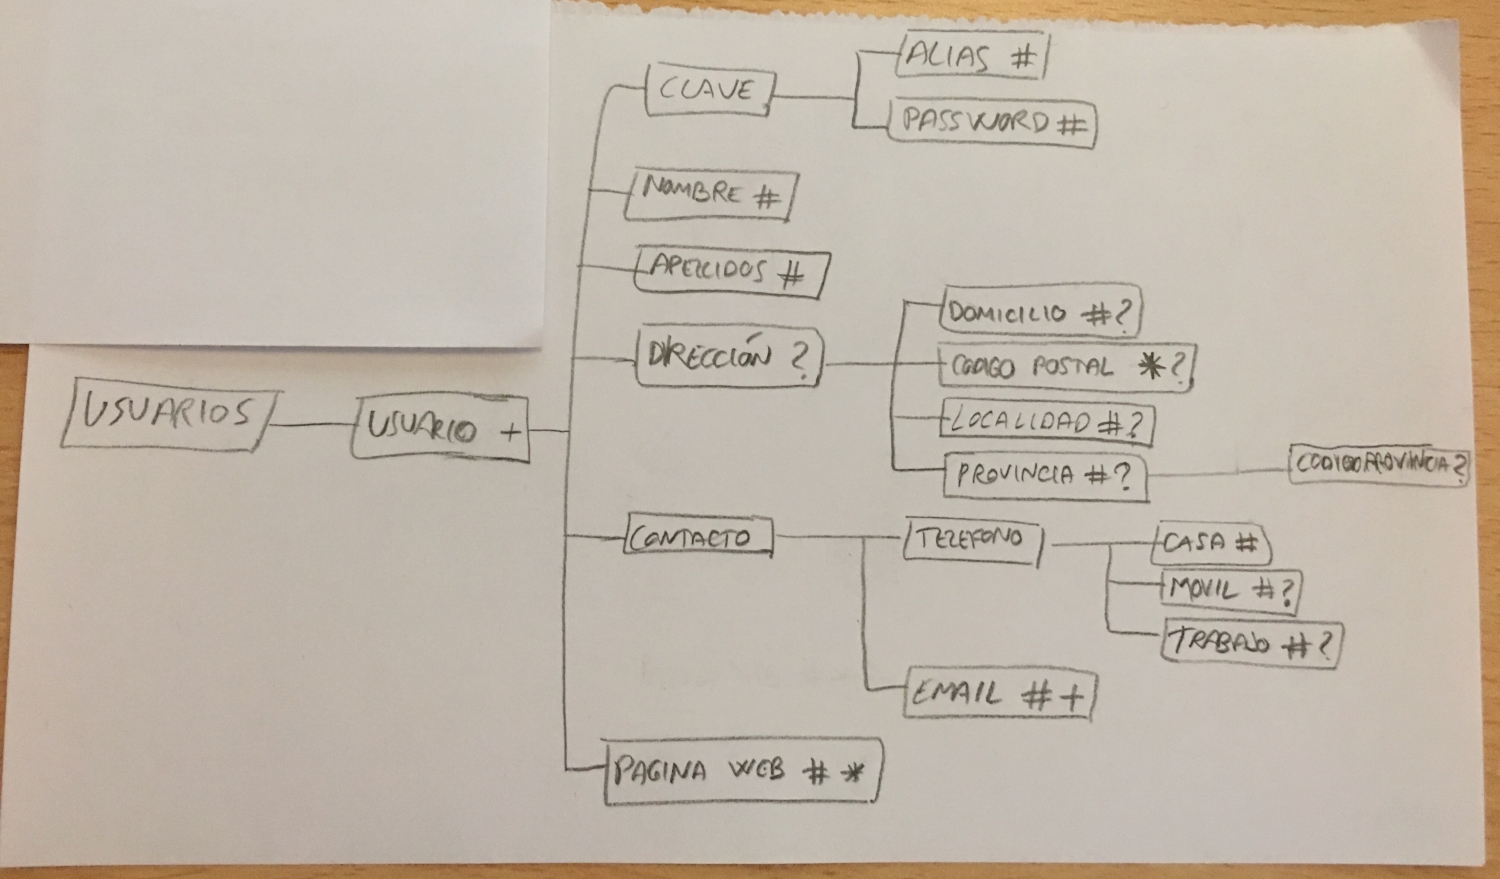 CLAVE
ALIAS #
PASSWORD #
NOMBRE #
APELLIDOS #
DIRECCIÓN ?
DOMICILIO #?
CODIGO POSTAL *?
LOCALIDAD #?
PROVINCIA #?
CODIGOPROVINCIA?
USUARIOS
USUARIO +
CONTACTO
TELEFONO
CASA #
MOVIL #?
TRABAJO #?
EMAIL #+
PAGINA WEB # *